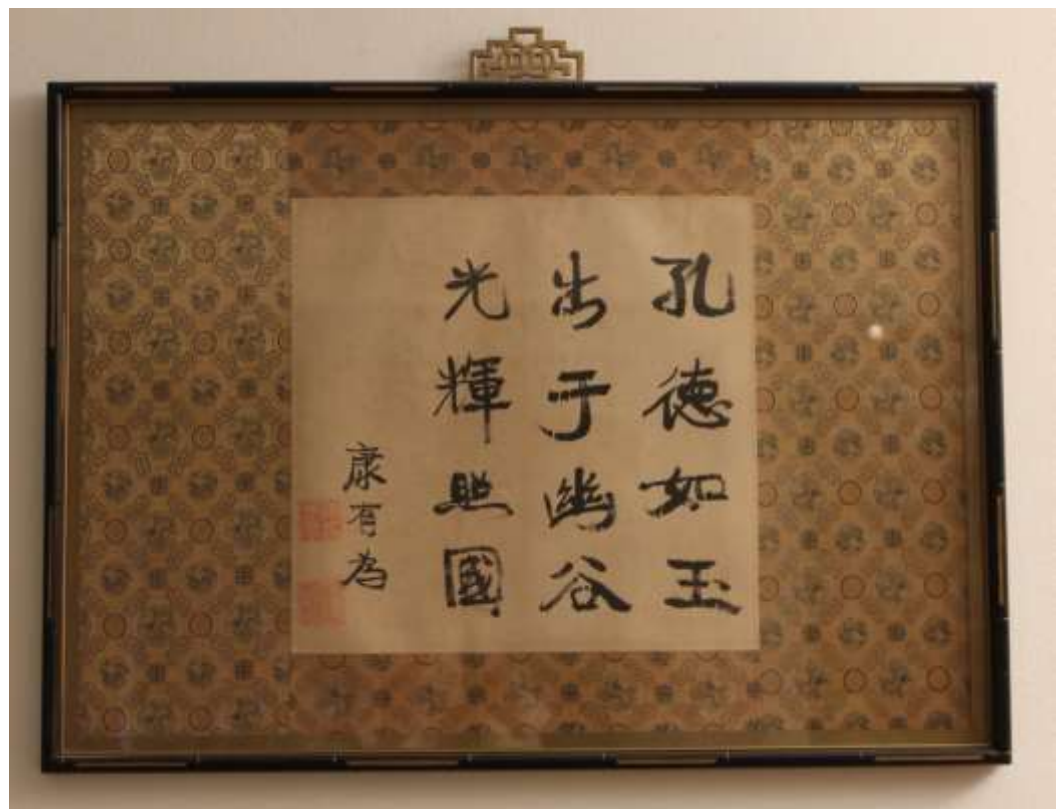 孔德如玉
出于幽谷
光輝照國
康有為